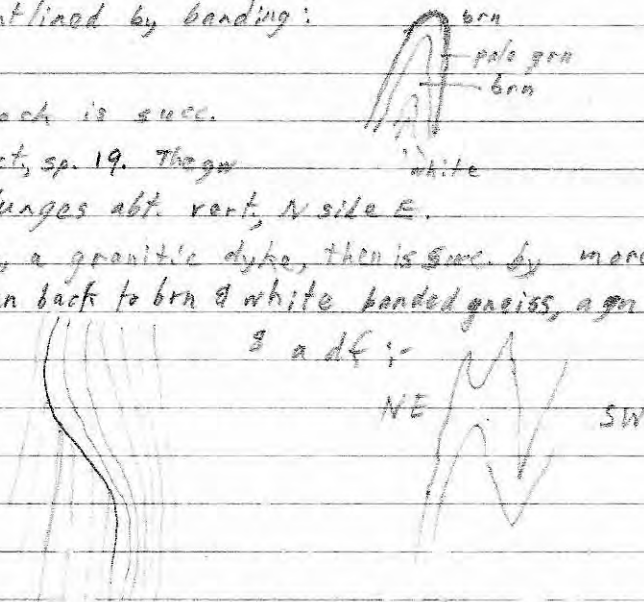 outlined by banding:
brn
pale grn
brn
white
ock is succ.
ct, sp. 19. The gn
lunges abt. vert, N side E.
, a granitic dyke, then is succ. by more
n back to brn & white banded gneiss, a gn
& a df :-
NE
SW